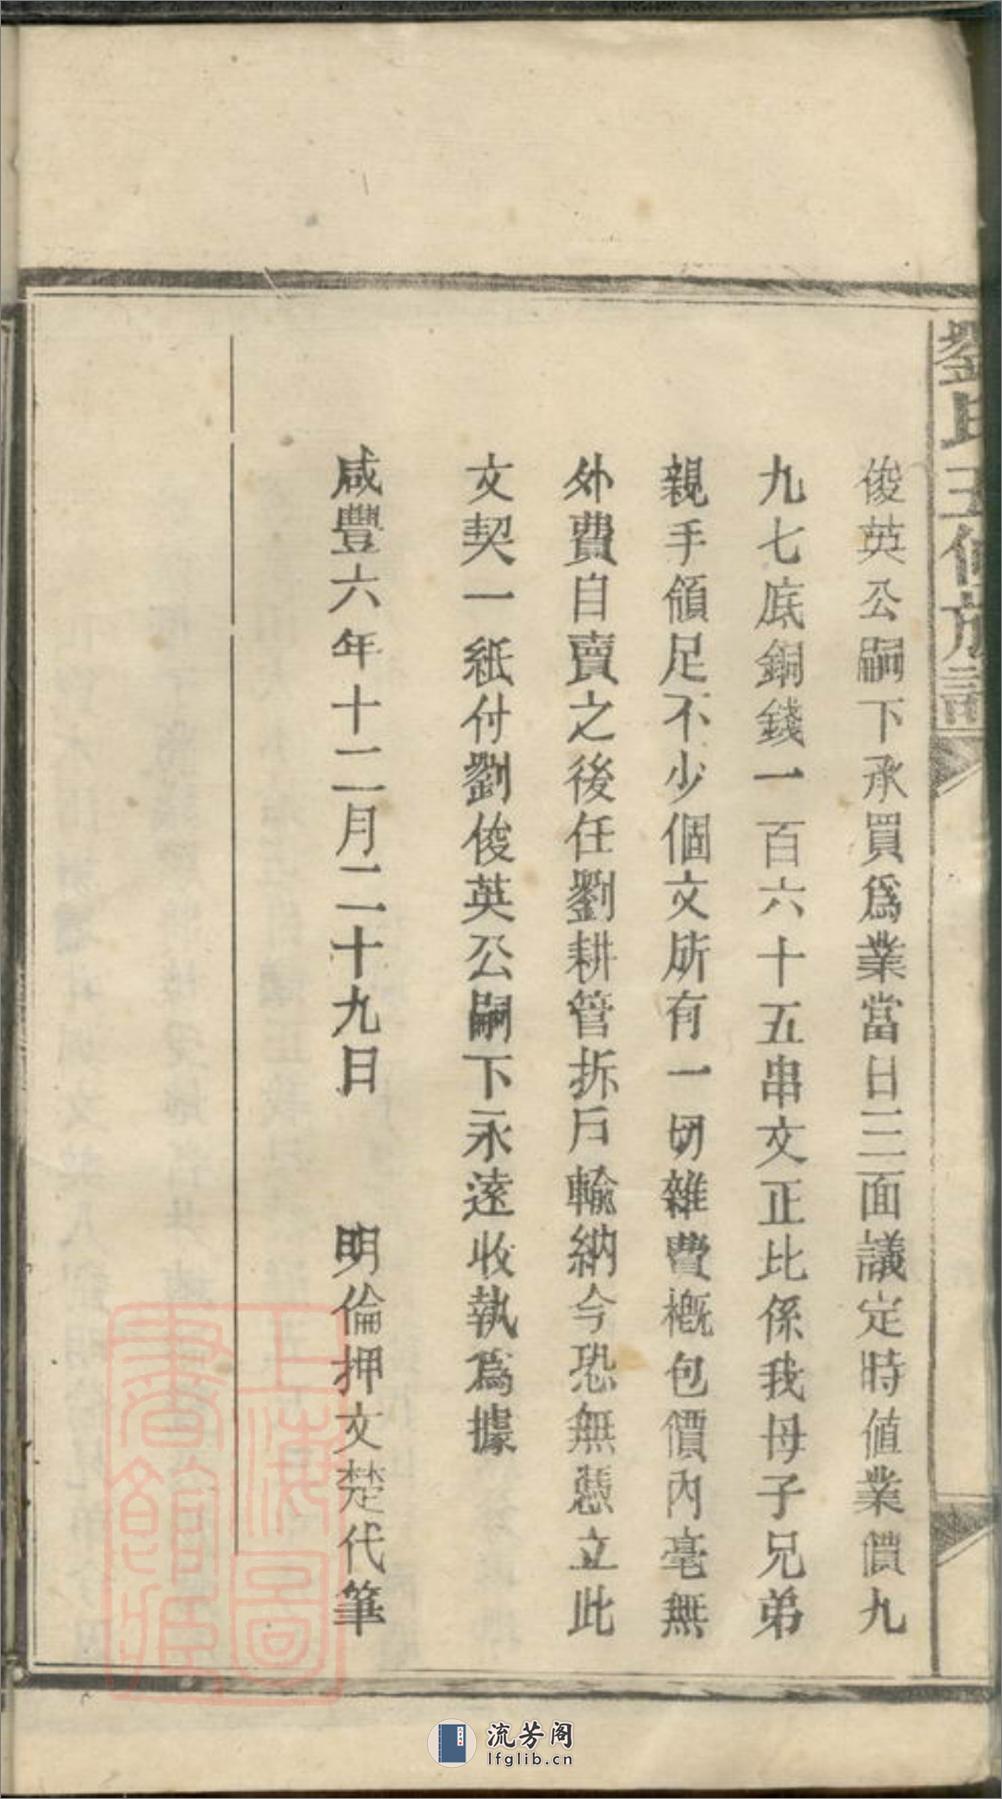 劉氏五修族譜
俊英公嗣下承買爲業當日三面議定時值業價九
九七底銅錢一百六十五串文正比係我母子兄弟
親手領足不少個文所有一切雜費概包價內毫無
外費自賣之後任劉耕管拆戶輸納今恐無憑立此
文契一紙付劉俊英公嗣下永遠收執爲據
咸豐六年十二月二十九日　明倫押文楚代筆
上海圖書館藏
流芳阁
lfglib.cn